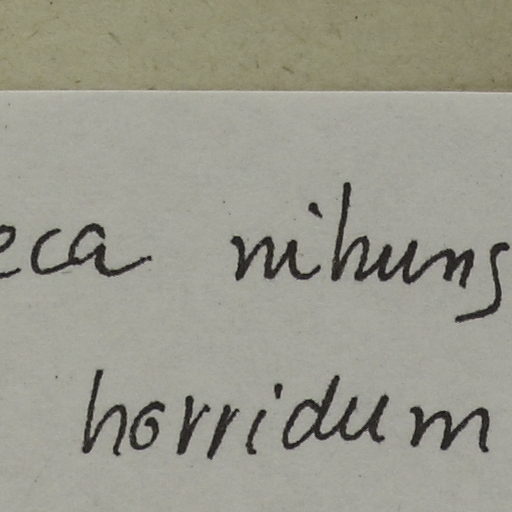 eca nihung
horridum